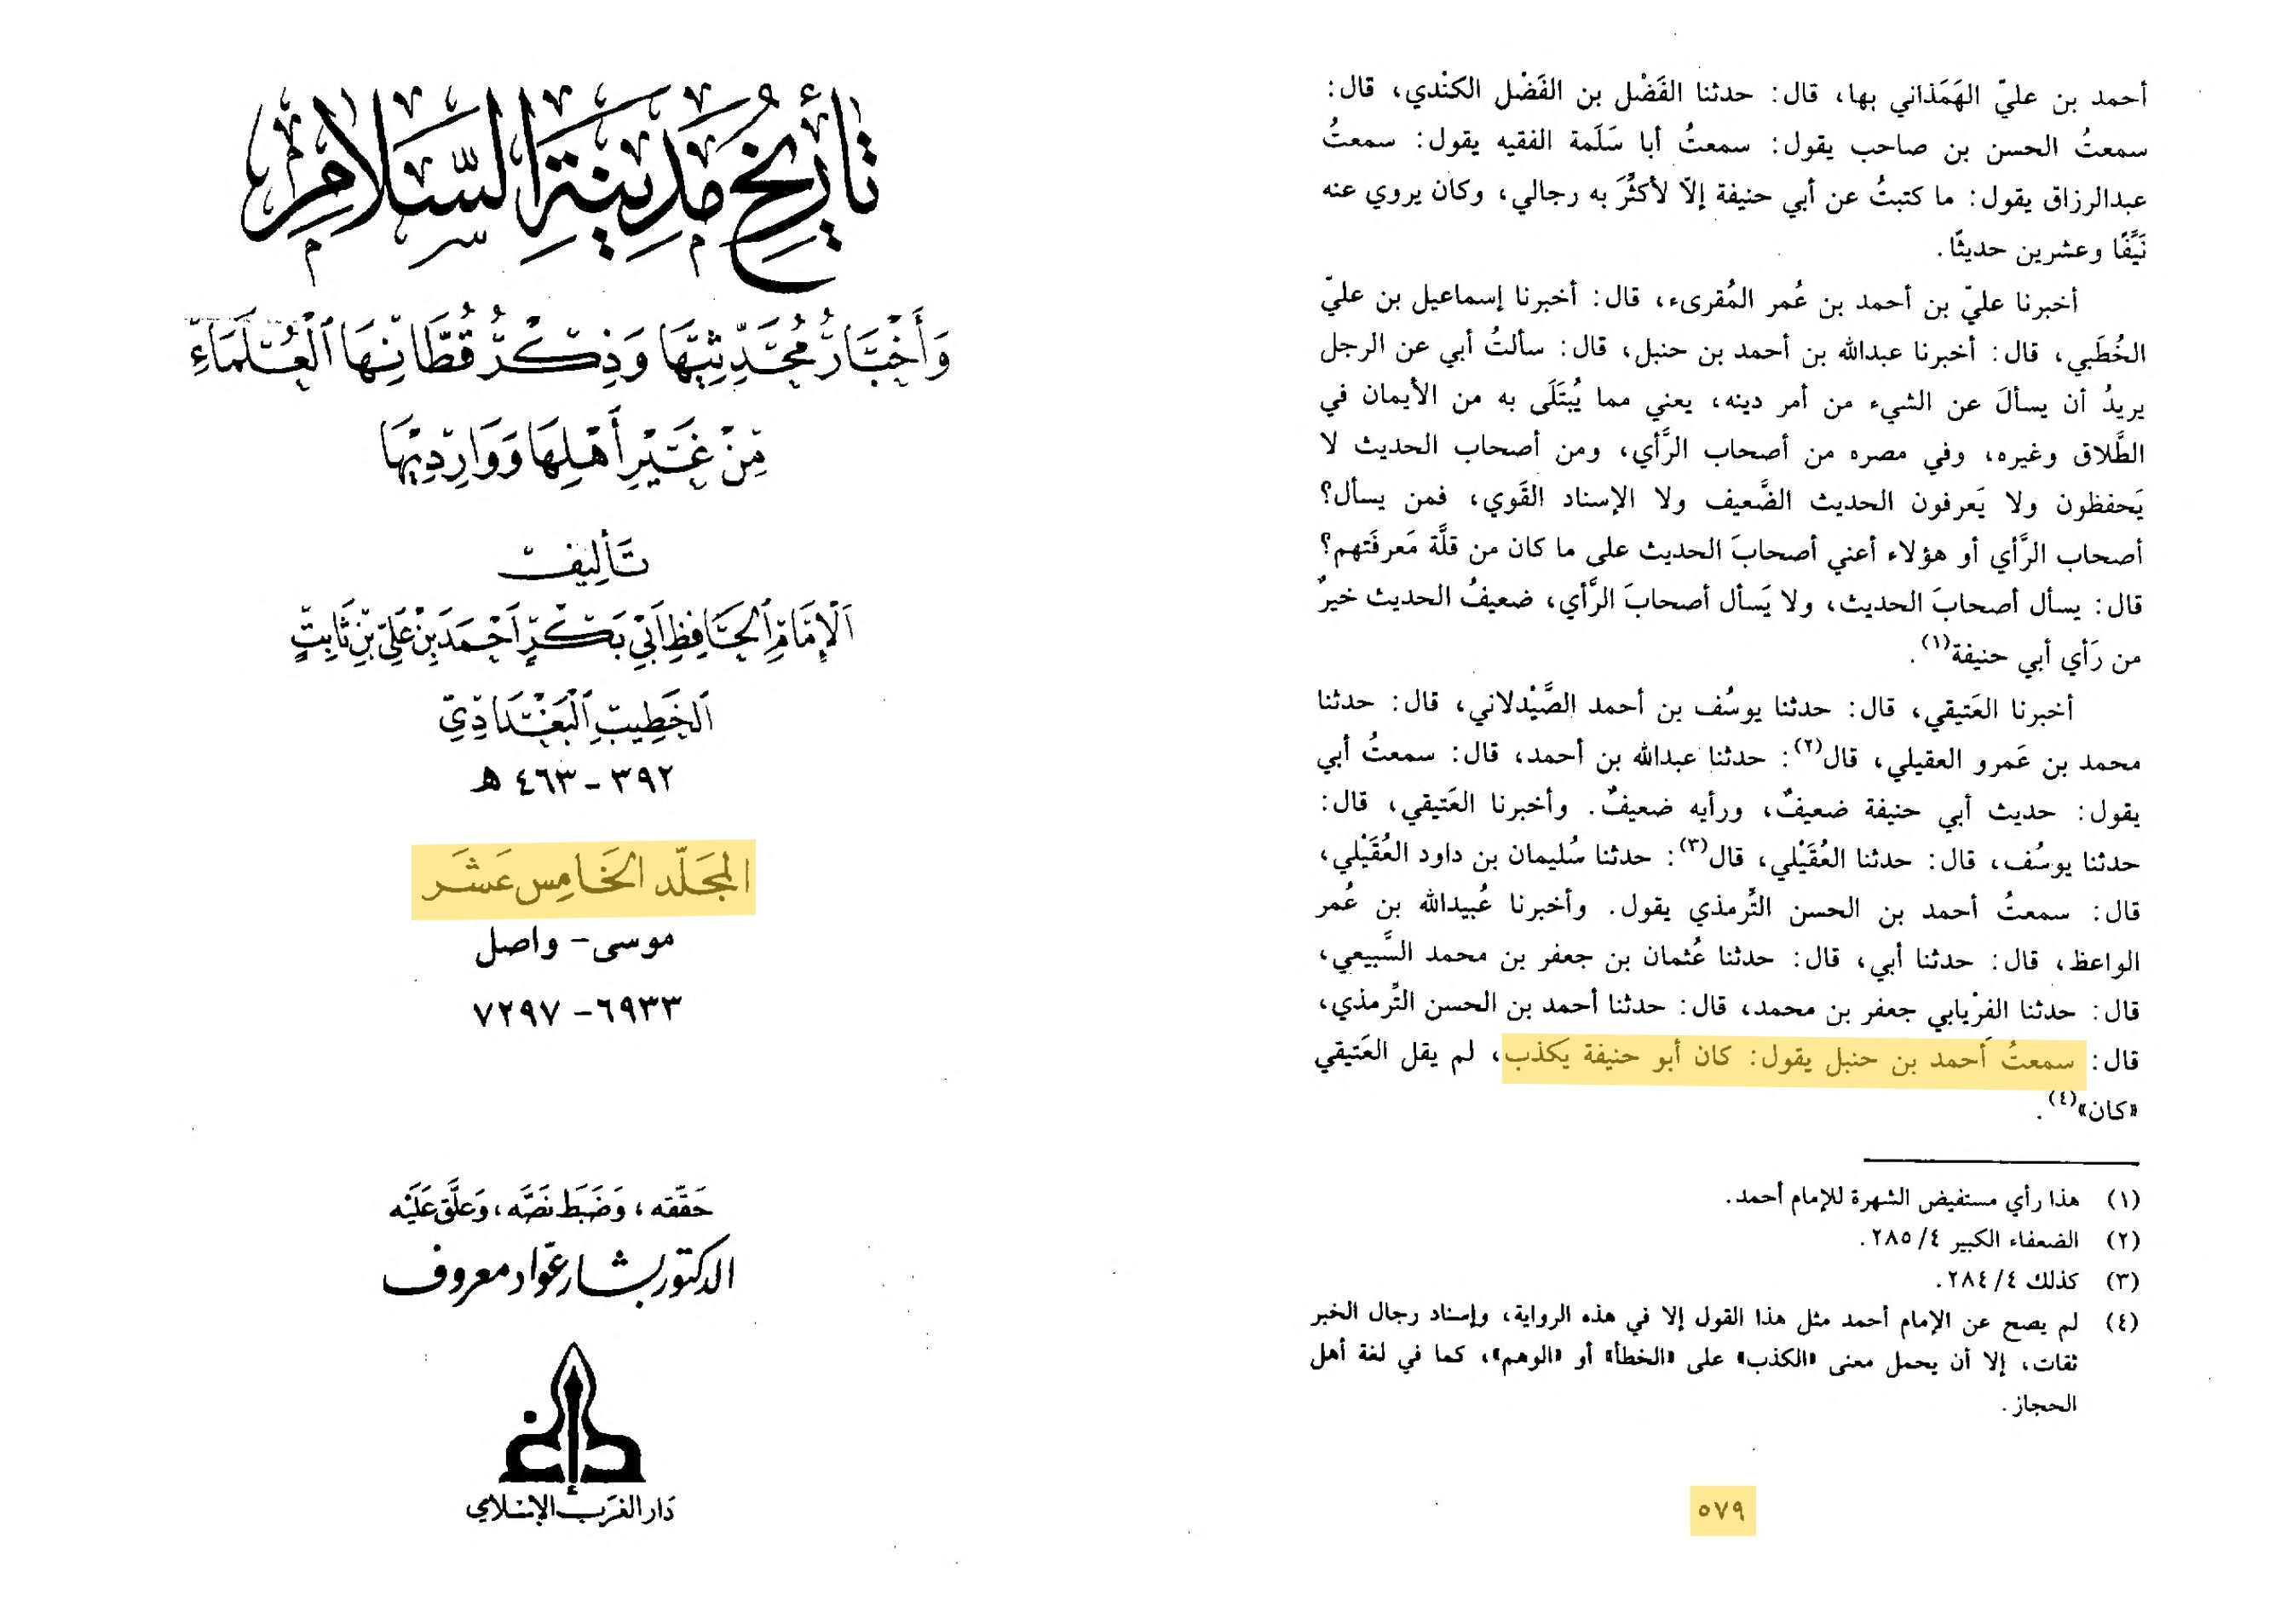 تأريخ مدينة السلام
وأخبار محدثيها وذكر قطانها العلماء
من غير أهلها ووارديها
تأليف
الإمام الحافظ أبي بكر أحمد بن علي بن ثابت
الخطيب البغدادي
٣٩٢ - ٤٦٣ هـ
المجلد الخامس عشر
موسى - واصل
٦٩٣٣ - ٧٢٩٧
حققه، وضبط نصه، وعلق عليه
الدكتور بشار عواد معروف
دار الغرب الإسلامي
أحمد بن عليّ الهَمَذاني بها، قال: حدثنا الفَضْل بن الفَضْل الكنْدي، قال:
سمعتُ الحسن بن صاحب يقول: سمعتُ أبا سَلَمة الفقيه يقول: سمعتُ
عبدالرزاق يقول: ما كتبتُ عن أبي حنيفة إلّا لأكثُرَ به رجالي، وكان يروي عنه
نَيِّفًا وعشرين حديثًا.
أخبرنا عليّ بن أحمد بن عُمر المُقرىء، قال: أخبرنا إسماعيل بن عليّ
الخُطَبي، قال: أخبرنا عبدالله بن أحمد بن حنبل، قال: سألتُ أبي عن الرجل
يريدُ أن يسألَ عن الشيء من أمر دينه، يعني مما يُبتَلَى به من الأيمان في
الطَّلاق وغيره، وفي مصره من أصحاب الرَّأي، ومن أصحاب الحديث لا
يَحفظون ولا يَعرفون الحديث الضَّعيف ولا الإسناد القَوي، فمن يسأل؟
أصحاب الرَّأي أو هؤلاء أعني أصحابَ الحديث على ما كان من قلَّة مَعرفَتهم؟
قال: يسأل أصحابَ الحديث، ولا يَسأل أصحابَ الرَّأي، ضعيفُ الحديث خيرٌ
من رَأي أبي حنيفة(١).
أخبرنا العَتيقي، قال: حدثنا يوسُف بن أحمد الصَّيْدلاني، قال: حدثنا
محمد بن عَمرو العقيلي، قال(٢): حدثنا عبدالله بن أحمد، قال: سمعتُ أبي
يقول: حديث أبي حنيفة ضعيفٌ، ورأيه ضعيفٌ. وأخبرنا العَتيقي، قال:
حدثنا يوسُف، قال: حدثنا العُقَيْلي، قال(٣): حدثنا سُليمان بن داود العُقَيْلي،
قال: سمعتُ أحمد بن الحسن التِّرمذي يقول. وأخبرنا عُبيدالله بن عُمر
الواعظ، قال: حدثنا أبي، قال: حدثنا عُثمان بن جعفر بن محمد السَّبيعي،
قال: حدثنا الفِرْيابي جعفر بن محمد، قال: حدثنا أحمد بن الحسن التِّرمذي،
قال: سمعتُ أحمد بن حنبل يقول: كان أبو حنيفة يكذب، لم يقل العَتيقي
«كان»(٤).
(١) هذا رأي مستفيض الشهرة للإمام أحمد.
(٢) الضعفاء الكبير ٤/ ٢٨٥.
(٣) كذلك ٤/ ٢٨٤.
(٤) لم يصح عن الإمام أحمد مثل هذا القول إلا في هذه الرواية، وإسناد رجال الخبر
ثقات، إلا أن يحمل معنى «الكذب» على «الخطأ» أو «الوهم»، كما في لغة أهل
الحجاز.
٥٧٩